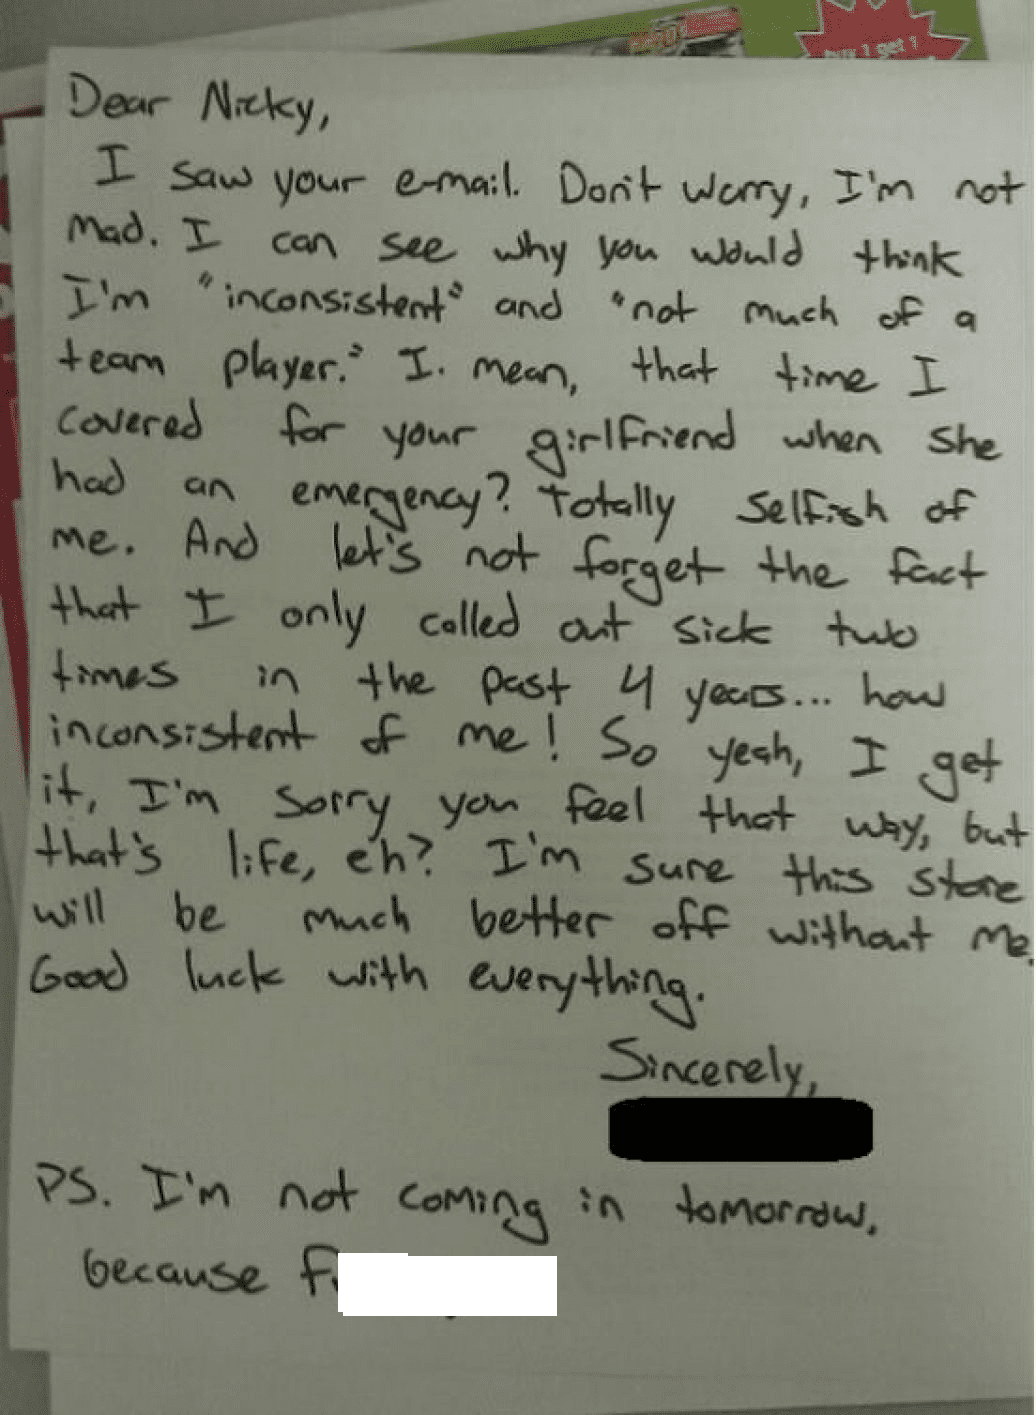 buy 1 get 1
Dear Nicky,
I saw your e-mail. Don't worry, I'm not
mad. I can see why you would think
I'm "inconsistent" and "not much of a
team player." I. mean, that time I
covered for your girlfriend when she
had an emergency? Totally selfish of
me. And let's not forget the fact
that I only called out sick two
times in the past 4 years... how
inconsistent of me! So yeah, I get
it, I'm sorry you feel that way, but
that's life, eh? I'm sure this store
will be much better off without me.
Good luck with everything.
Sincerely,
PS. I'm not coming in tomorrow.
because